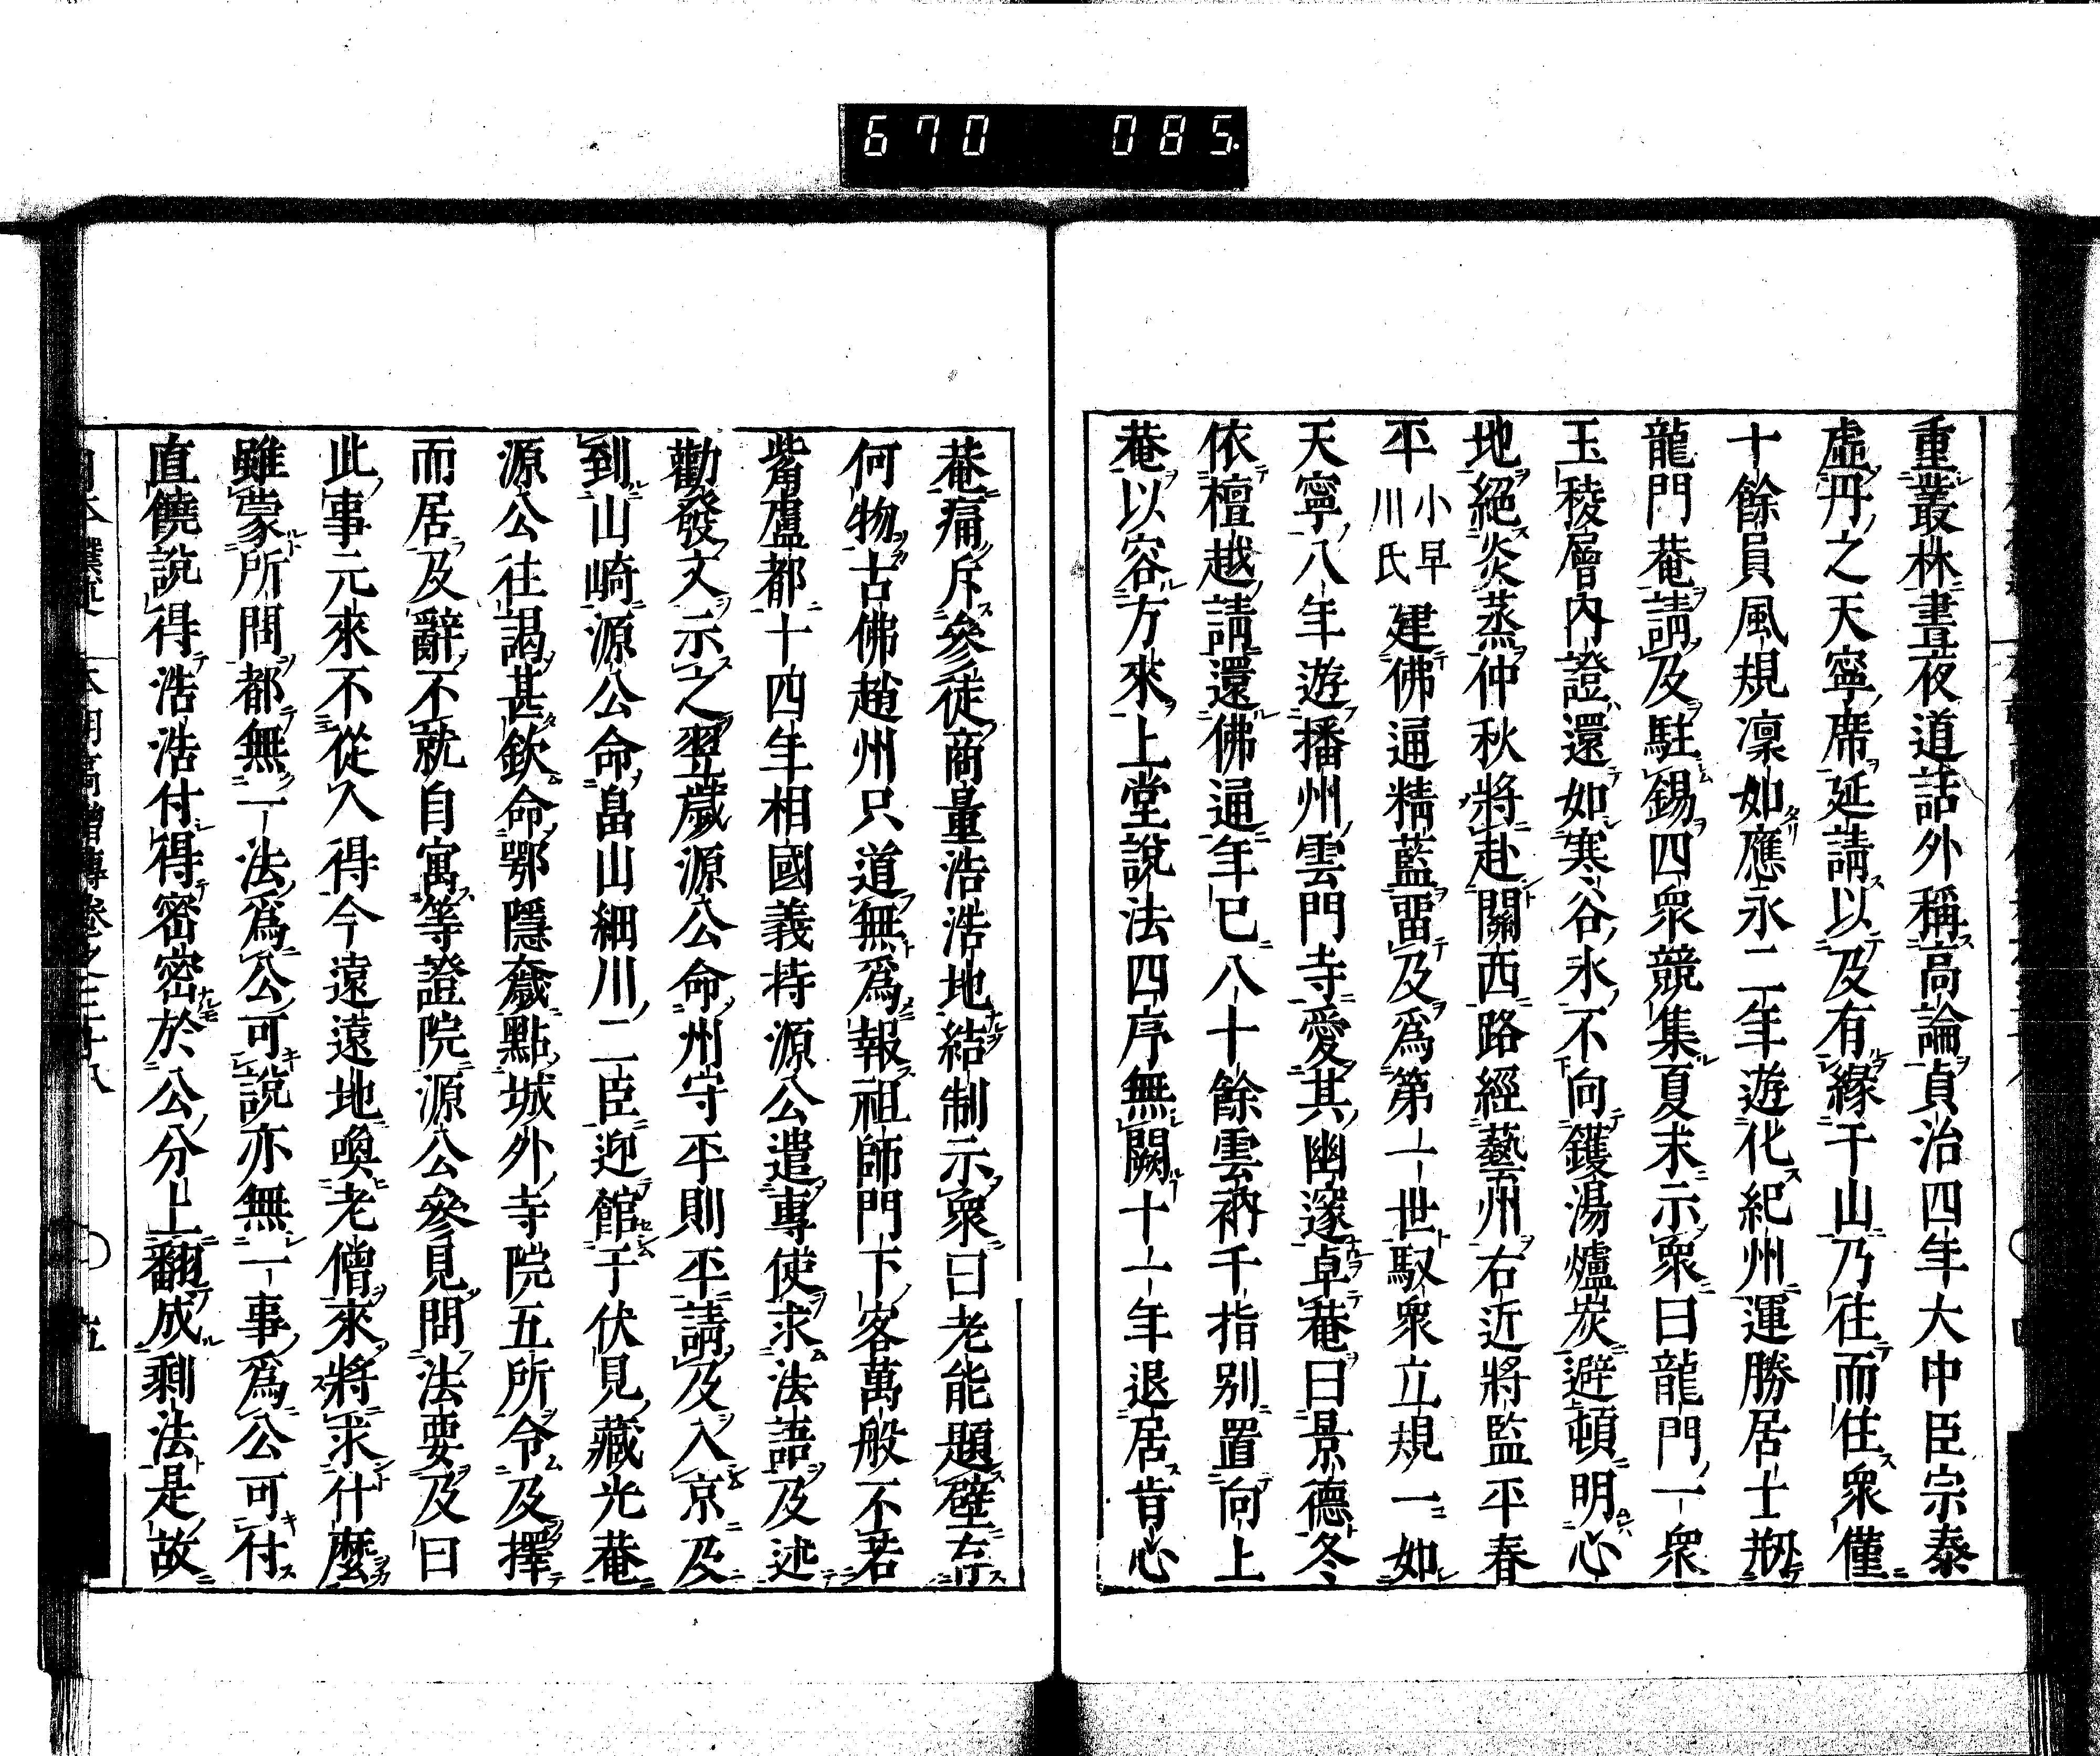 670 085.
重叢林晝夜道話外稱高論貞治四年大中臣宗泰
虛丹之天寧席延請以及有緣干山乃往而住衆僅
十餘員風規凛如應永二年遊化紀州運勝居士剏
龍門菴請及駐錫四衆競集夏末示衆曰龍門一衆
玉稜層內證還如寒谷氷不向鑊湯爐炭避頓明心
地絕炎蒸仲秋將赴關西路經藝州右近將監平春
平小早川氏建佛通精藍畱及爲第一世馭衆立規一如
天寧八年遊播州雲門寺愛其幽邃卓菴曰景德冬
依檀越請還佛通年已八十餘雲衲千指別置向上
菴以容方來上堂說法四序無闕十一年退居肯心
菴痛斥參徒商量浩浩地結制示衆曰老能題壁
何物古佛趙州只道無爲報祖師門下客萬般不若
觜盧都十四年相國義持源公遣專使求法語及述
勸發文示之翌歲源公命州守平則平請及入京及
到山崎源公命畠山細川二臣迎館于伏見藏光菴
源公往謁甚欽命鄂隱龕點城外寺院五所令及擇
而居及辭不就自寓等證院源公參見問法要及曰
此事元來不從入得今遠遠地喚老僧來將求什麼
雖蒙所問都無一法爲公可說亦無一事爲公可付
直饒說得浩浩付得密密於公分上翻成剩法是故
本朝高僧傳卷之三十八 五